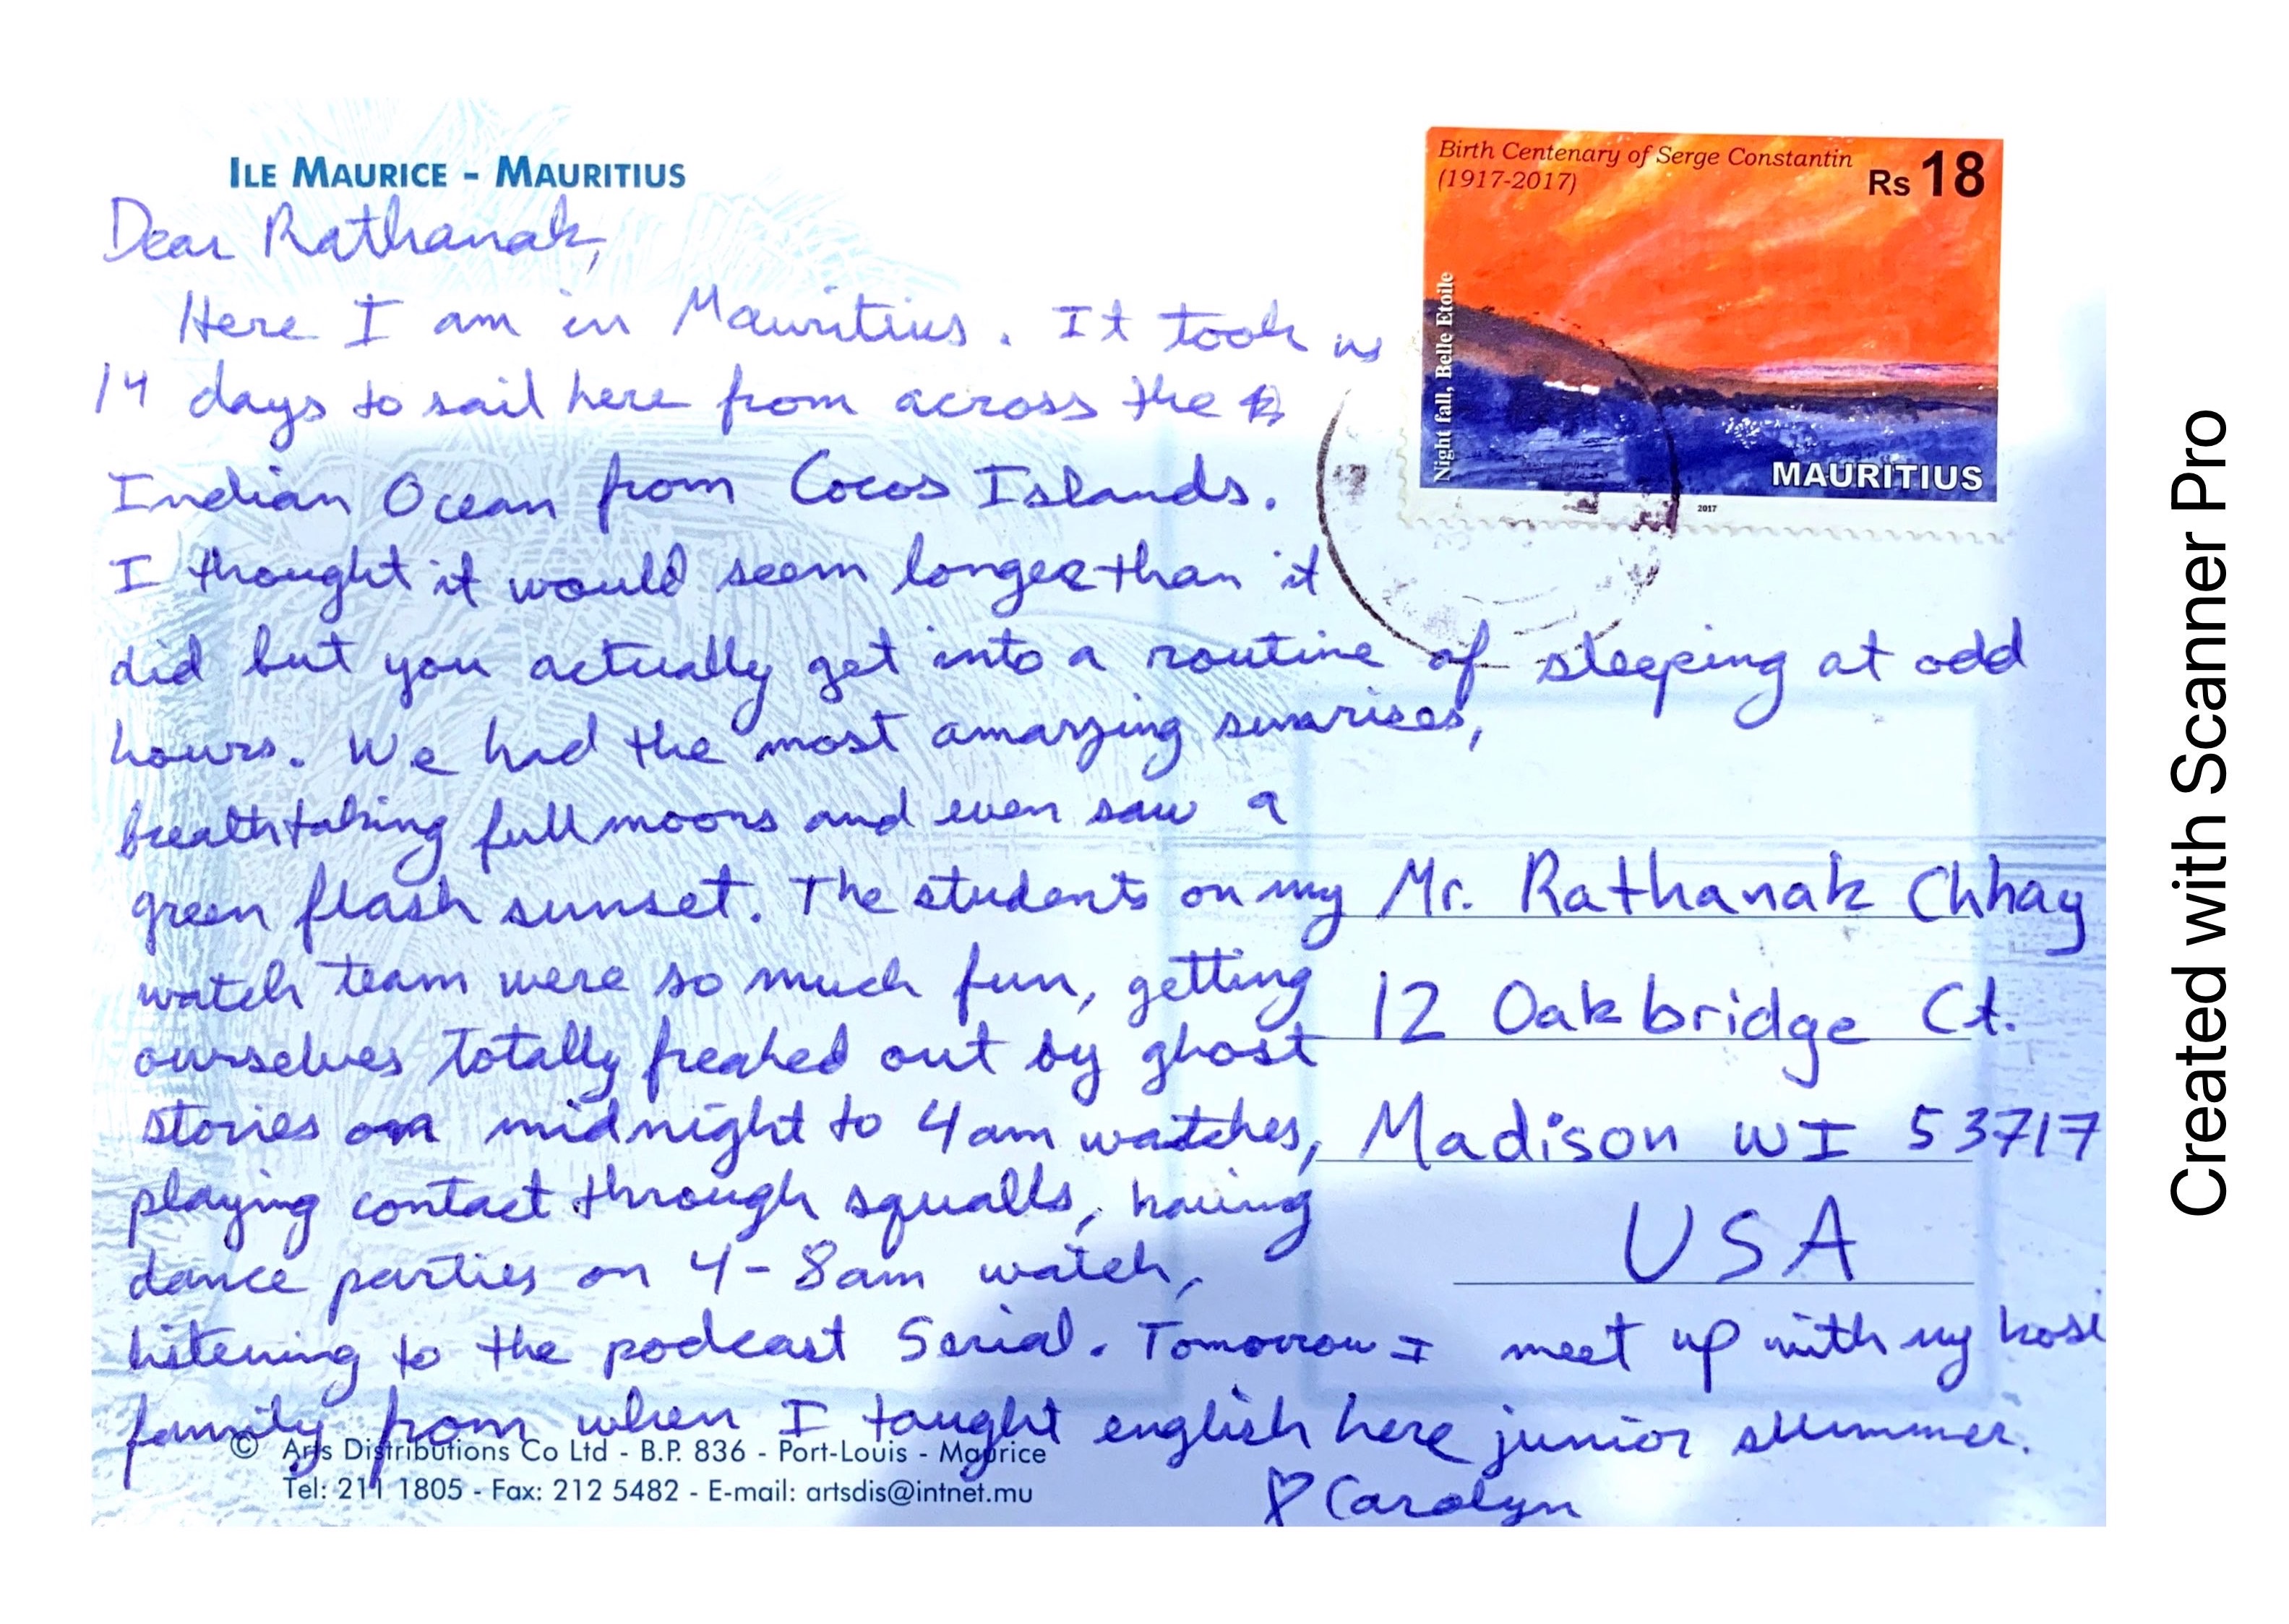 ILE MAURICE - MAURITIUS
Birth Centenary of Serge Constantin
(1917-2017)
Rs 18
Night fall, Belle Etoile
MAURITIUS
2017
Dear Rathanak,
Here I am in Mauritius. It took us
14 days to sail here from across the
Indian Ocean from Cocos Islands.
I thought it would seem longer than it
did but you actually get into a routine of sleeping at odd
hours. We had the most amazing sunrises,
breathtaking full moons and even saw a
green flash sunset. The students on my
watch team were so much fun, getting
ourselves totally freaked out by ghost
stories on midnight to 4am watches,
playing contact through squalls, having
dance parties on 4-8am watch,
listening to the podcast Serial. Tomorrow I meet up with my host
family from when I taught english here junior summer.
♡ Carolyn
Mr. Rathanak Chhay
12 Oakbridge Ct.
Madison WI 53717
USA
© Arts Distributions Co Ltd - B.P. 836 - Port-Louis - Maurice
Tel: 211 1805 - Fax: 212 5482 - E-mail: artsdis@intnet.mu
Created with Scanner Pro